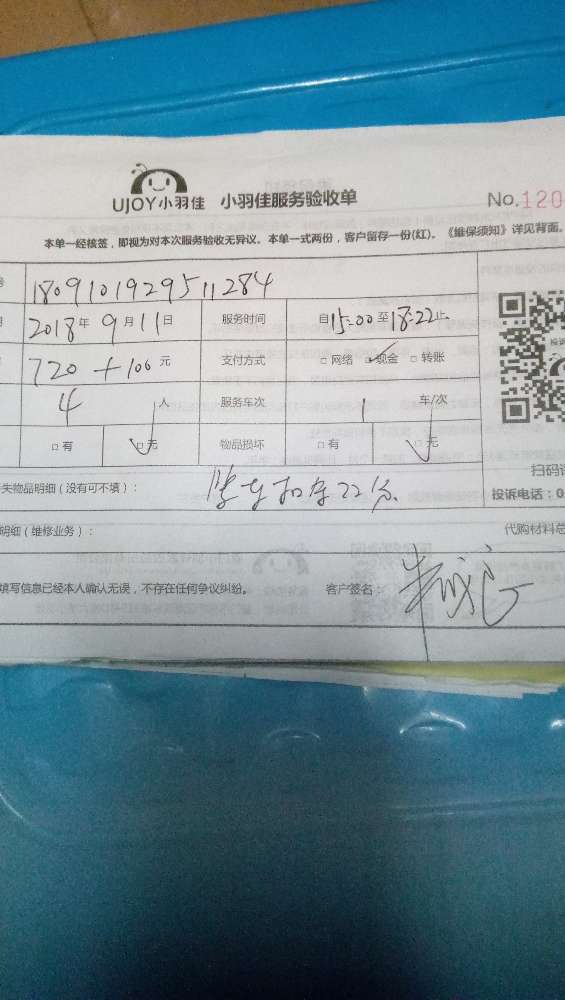 UJOY小羽佳 小羽佳服务验收单 No.120
本单一经核签，即视为对本次服务验收无异议。本单一式两份，客户留存一份(红)。《维保须知》详见背面。
号 1809101929511284
期 2018年9月11日 服务时间 自15:00至18:22止
720+100元 支付方式 □网络 □现金 □转账
4人 服务车次 1车/次
□有 □无 物品损坏 □有 □无
失物品明细（没有可不填）： 22分
投诉电话：0
明细（维修业务）： 代购材料总
填写信息已经本人确认无误，不存在任何争议纠纷。 客户签名：